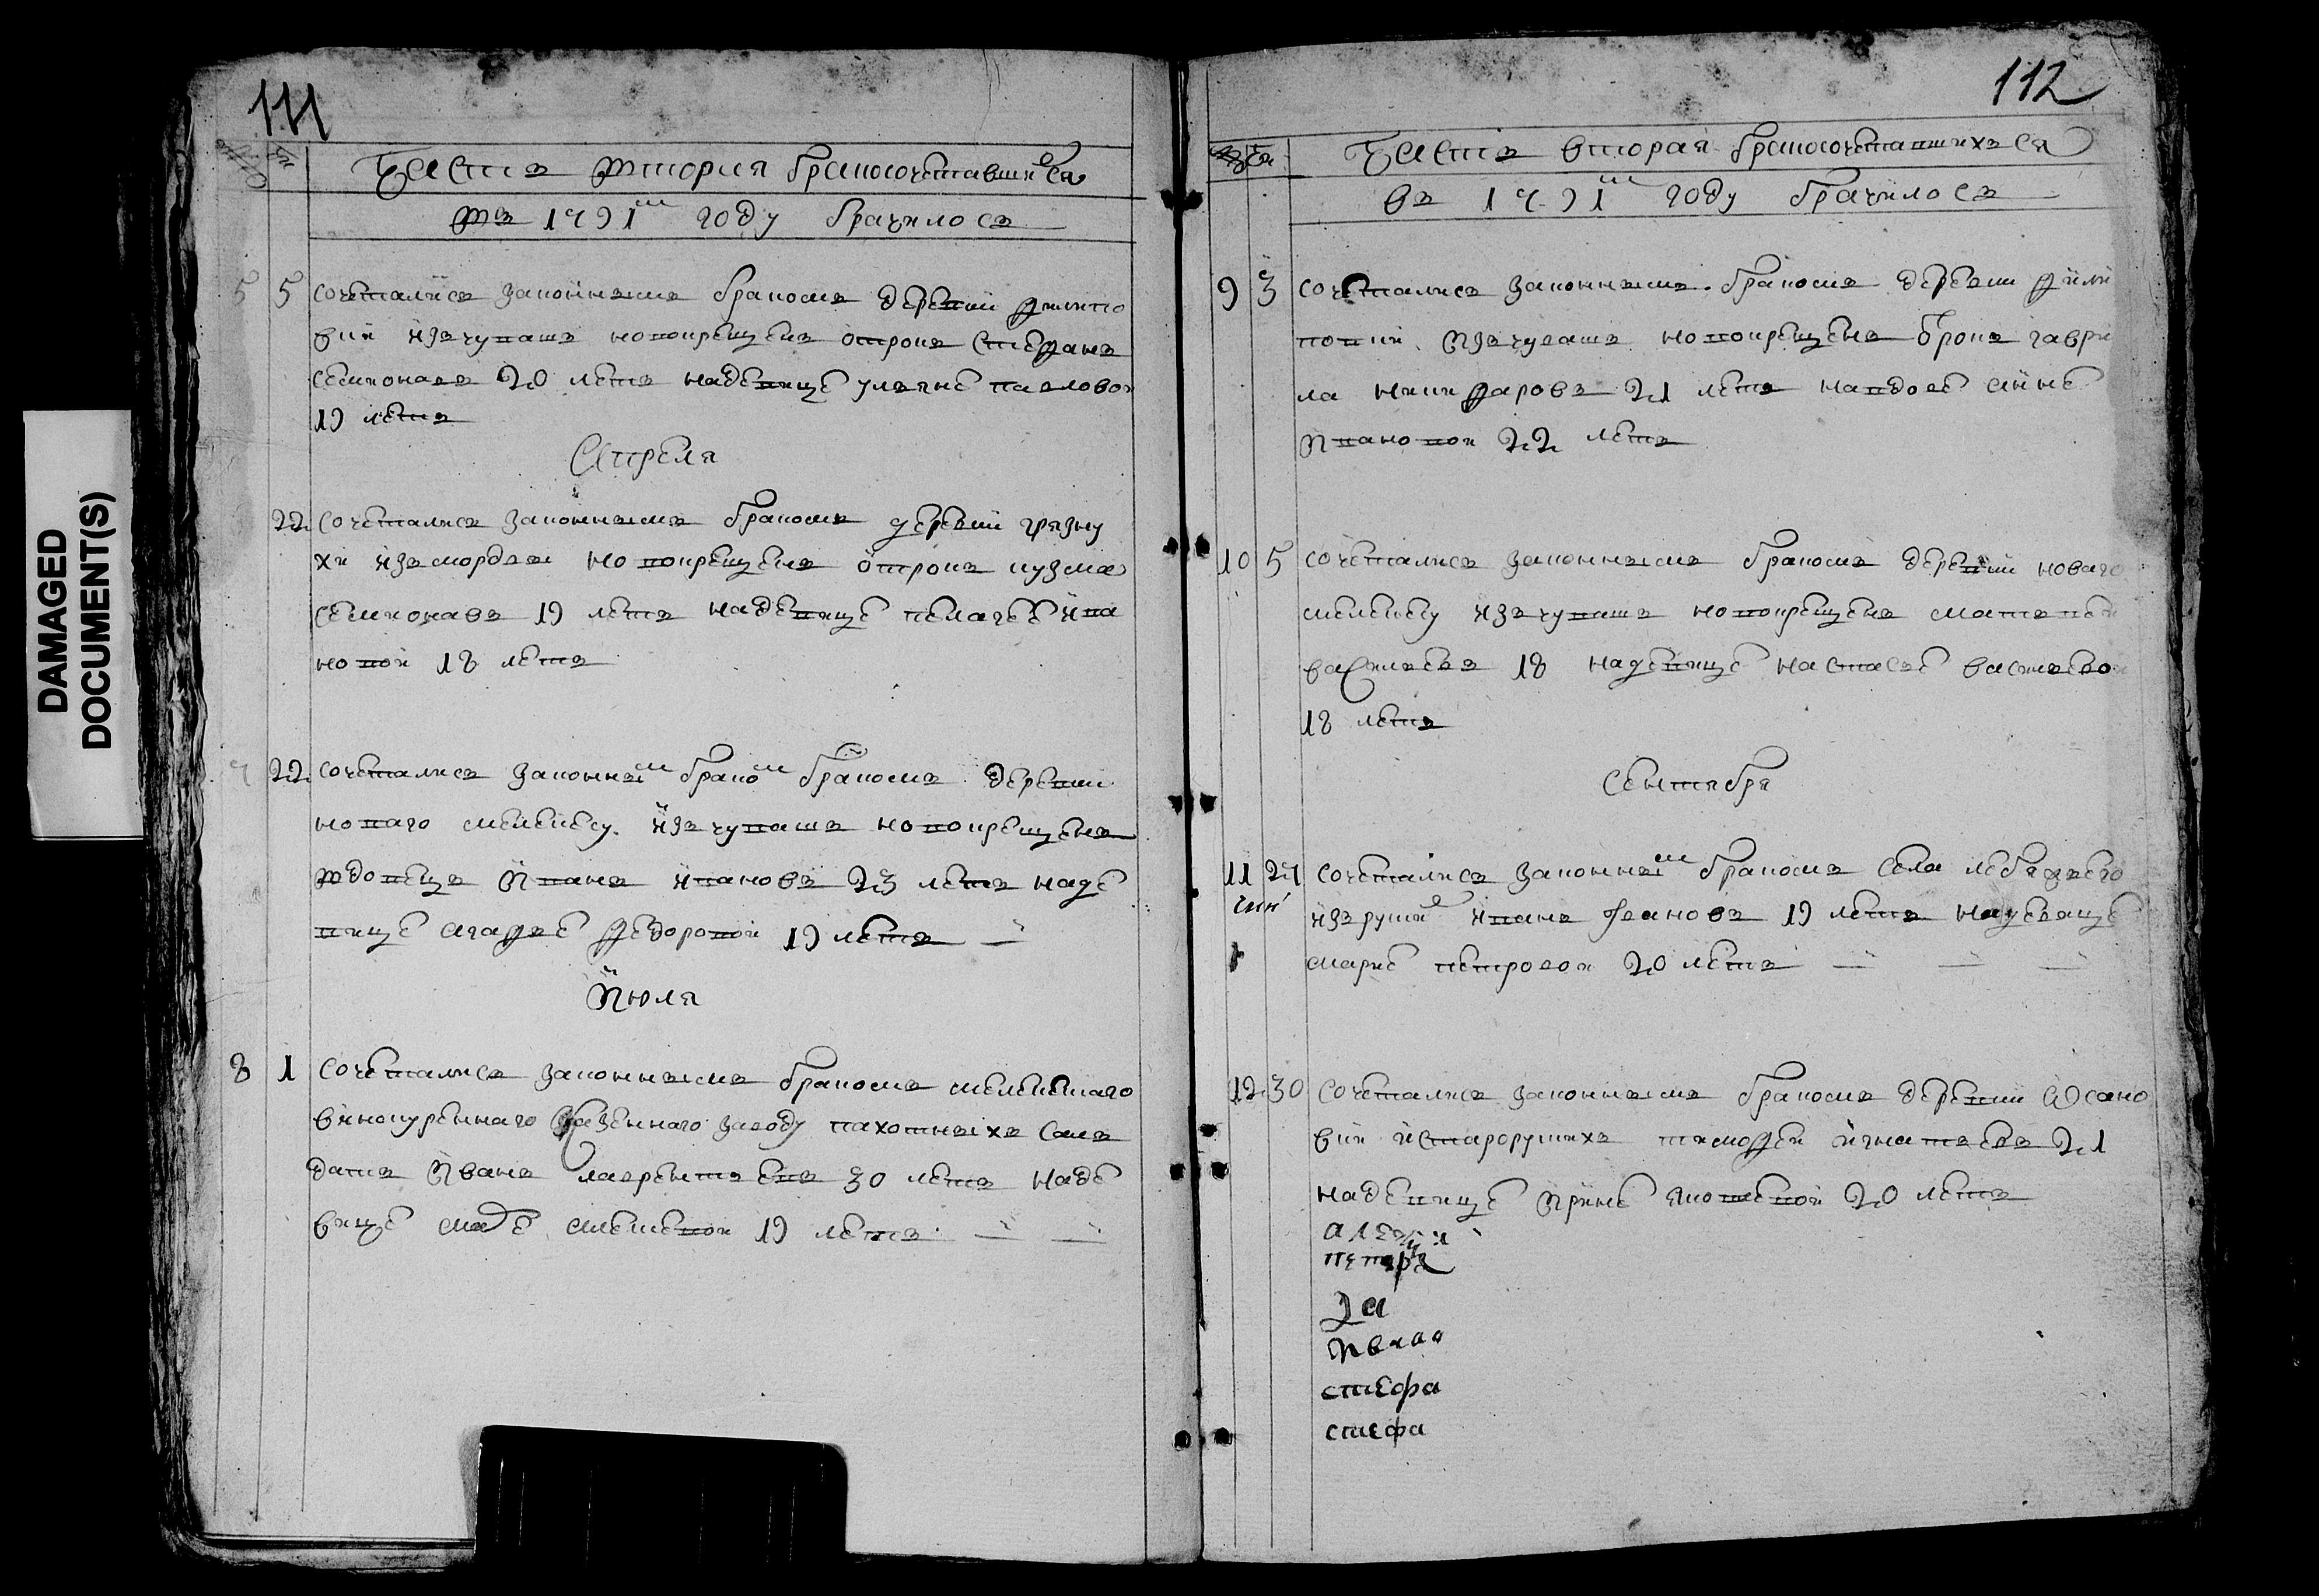 DAMAGED
DOCUMENT(S)
111
Часть вторая бракосочетавшихся
въ 1791м году брачилось
5 5 сочетались законнымъ бракомъ деревни филипо
вки изъчувашъ новокрещенъ отрокъ Стефанъ
семионовъ 20 летъ надевице ульяне павловой
19 летъ
Апреля
22 сочетались законнымъ бракомъ деревни грязну
хи изъмордвы новокрещенъ отрокъ кузма
семионавъ 19 летъ надевице пелагее ива
новой 18 летъ
7 22 сочетались законным браком бракомъ деревни
новаго мелекесу изъчувашъ новокрещенъ
вдовецъ Иванъ ивановъ 23 летъ наде
вице агафье федоровой 19 летъ
Июля
8 1 сочетались законнымъ бракомъ мелекескаго
винокуреннаго казеннаго заводу пахотныхъ сол
датъ Иванъ лаврентьевъ 30 летъ наде
вице 19 летъ
112
Часть вторая бракосочетавшихъся
въ 1791м году брачилось
9 3 сочетались законнымъ бракомъ деревни фили
повки изъчувашъ новокрещенъ брокъ гаври
ла никифаровъ 21 летъ навдове анне
Ивановой 22 летъ
10 5 сочетались законнымъ бракомъ деревни новаго
мелекесу изъчувашъ новокрещенъ матвей
васильевъ 18 надевице настасье васильевой
18 летъ
Сентября
11 27 сочетались законным бракомъ села лебяжьего
изъруских иванъ Ивановъ 19 летъ надевице
марие петровой 20 летъ
12 30 сочетались законнымъ бракомъ деревни Асано
вки истароруцкихъ тимофей игнатьевъ 21
надевице Ирине яковлевой 20 летъ
петръ
Ивана
стефа
стефа